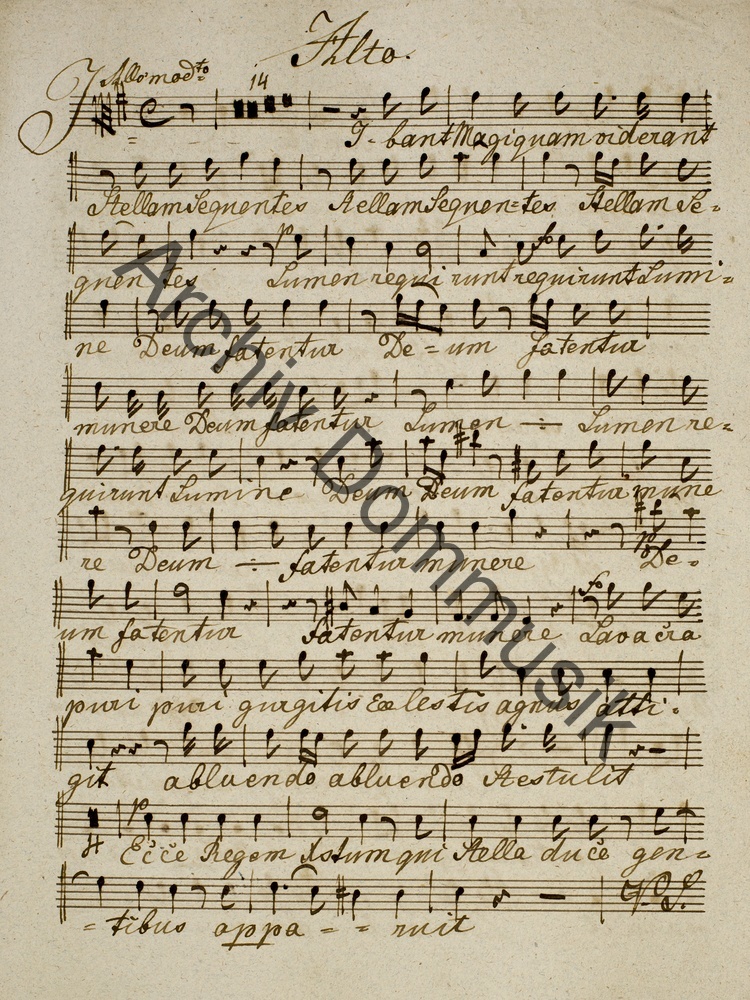 Alto.
Allo: modto
14
I-bant Magi quam viderant
Stellam Sequentes Stellam Sequen=tes Stellam Se=
quen tes Lumen requi runt requirunt Lumi=
ne Deum fatentur De=um fatentur
munere Deum fatentur Lumen ÷ Lumen re=
quirunt Lumine Deum Deum fatentur mune
re Deum ÷ fatentur munere De=
um fatentur fatentur munere Lavacra
puri puri gurgitis Coelestis agnus atti=
git abluendo abluendo
p
4 Ecce Regem Xstum qui Stella duce gen=
=tibus appa== ruit
V.S.
Archiv Dommusik